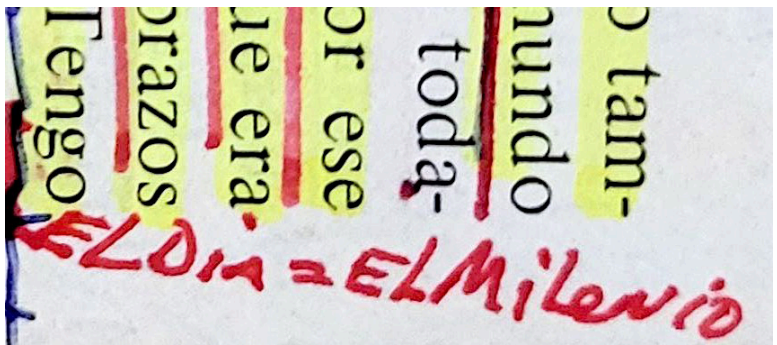 o tam-
mundo
toda-
or ese
ue era
brazos
Tengo
EL Dia = EL MiLeNio